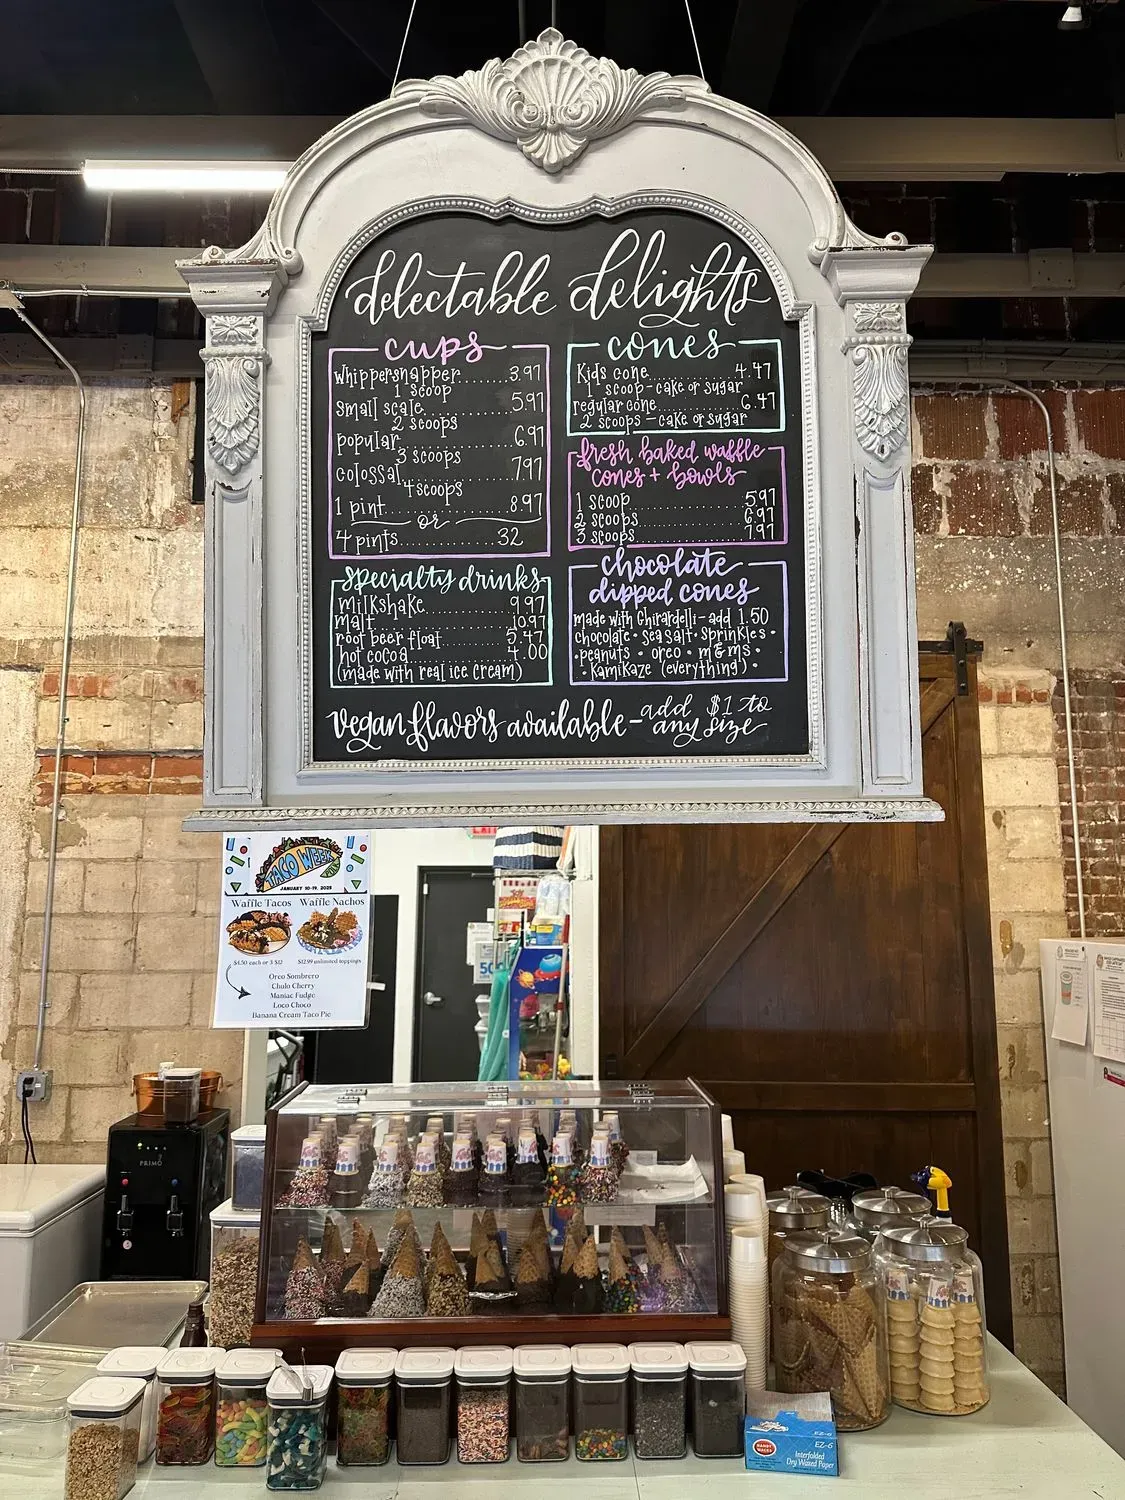 delectable delights
cups
whippersnapper.......3.97
1 scoop
small scale..............5.97
2 scoops
popular..................6.97
3 scoops
colossal..................7.97
4 scoops
1 pint....................8.97
or
4 pints................32
specialty drinks
milkshake............9.97
malt.....................10.97
root beer float........5.47
hot cocoa..............4.00
(made with real ice cream)
cones
Kids cone..............4.47
1 scoop-cake or sugar
regular cone...........6.47
2 scoops - cake or sugar
fresh baked waffle
cones + bowls
1 scoop................5.97
2 scoops...............6.97
3 scoops...............7.97
chocolate
dipped cones
made with Ghirardelli-add 1.50
chocolate • sea salt • sprinkles •
• peanuts • oreo • m&ms •
• Kamikaze (everything) •
vegan flavors available - add $1 to
any size
TACO WEEK
JANUARY 10-19, 2025
Waffle Tacos Waffle Nachos
$4.50 each or 3 $12 $12.99 unlimited toppings
Oreo Sombrero
Chulo Cherry
Maniac Fudge
Loco Choco
Banana Cream Taco Pie
EXIT
50
PRIMO
HANDY WACKS
EZ-6
EZ-6
Interfolded
Dry Waxed Paper